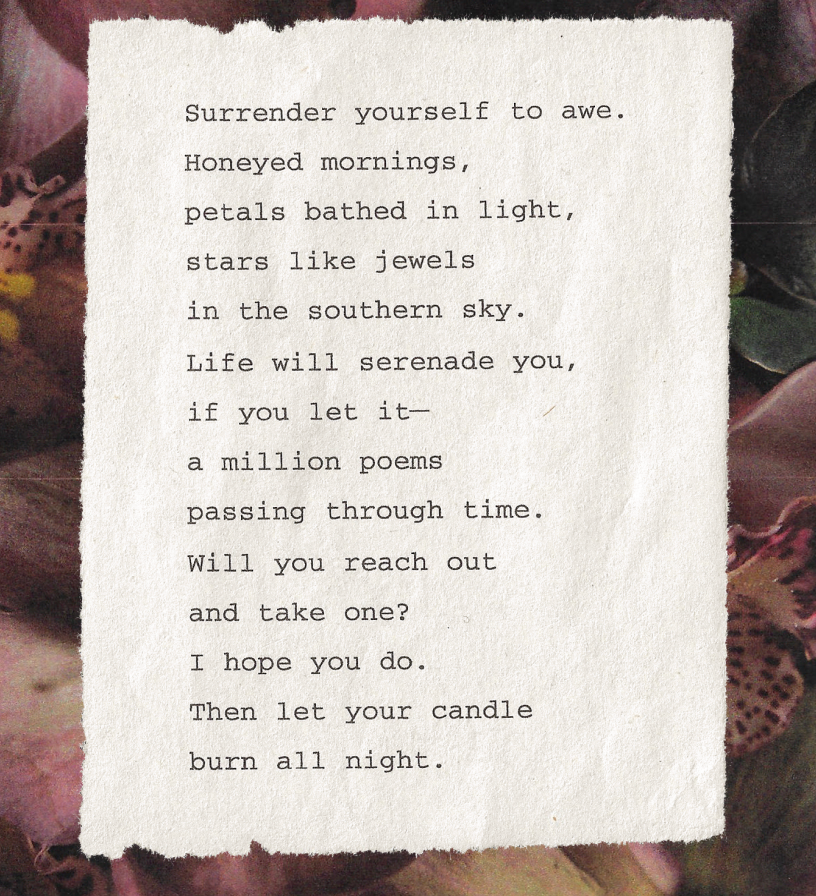 Surrender yourself to awe.
Honeyed mornings,
petals bathed in light,
stars like jewels
in the southern sky.
Life will serenade you,
if you let it—
a million poems
passing through time.
Will you reach out
and take one?
I hope you do.
Then let your candle
burn all night.